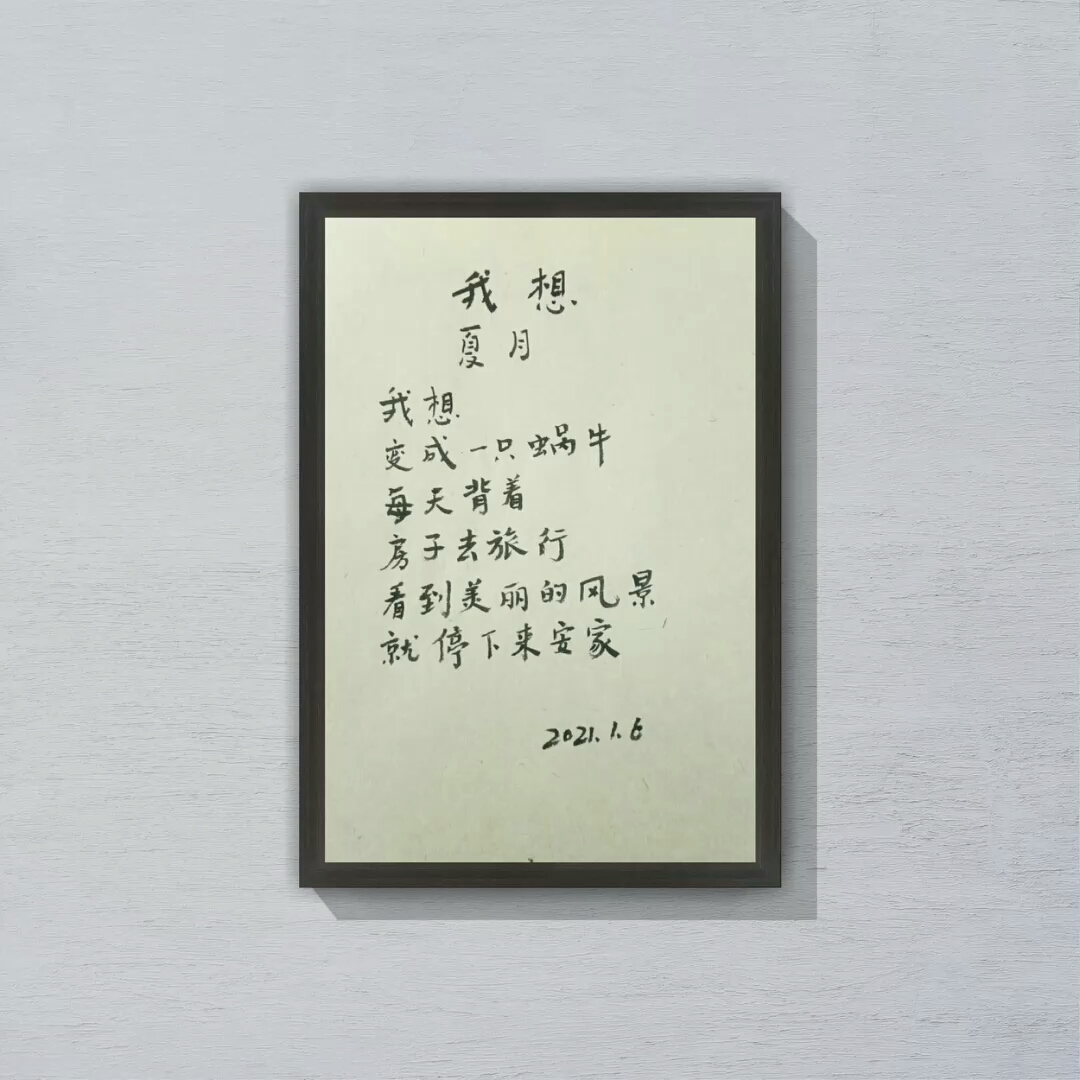 我想
夏月
我想
变成一只蜗牛
每天背着
房子去旅行
看到美丽的风景
就停下来安家
2021.1.6